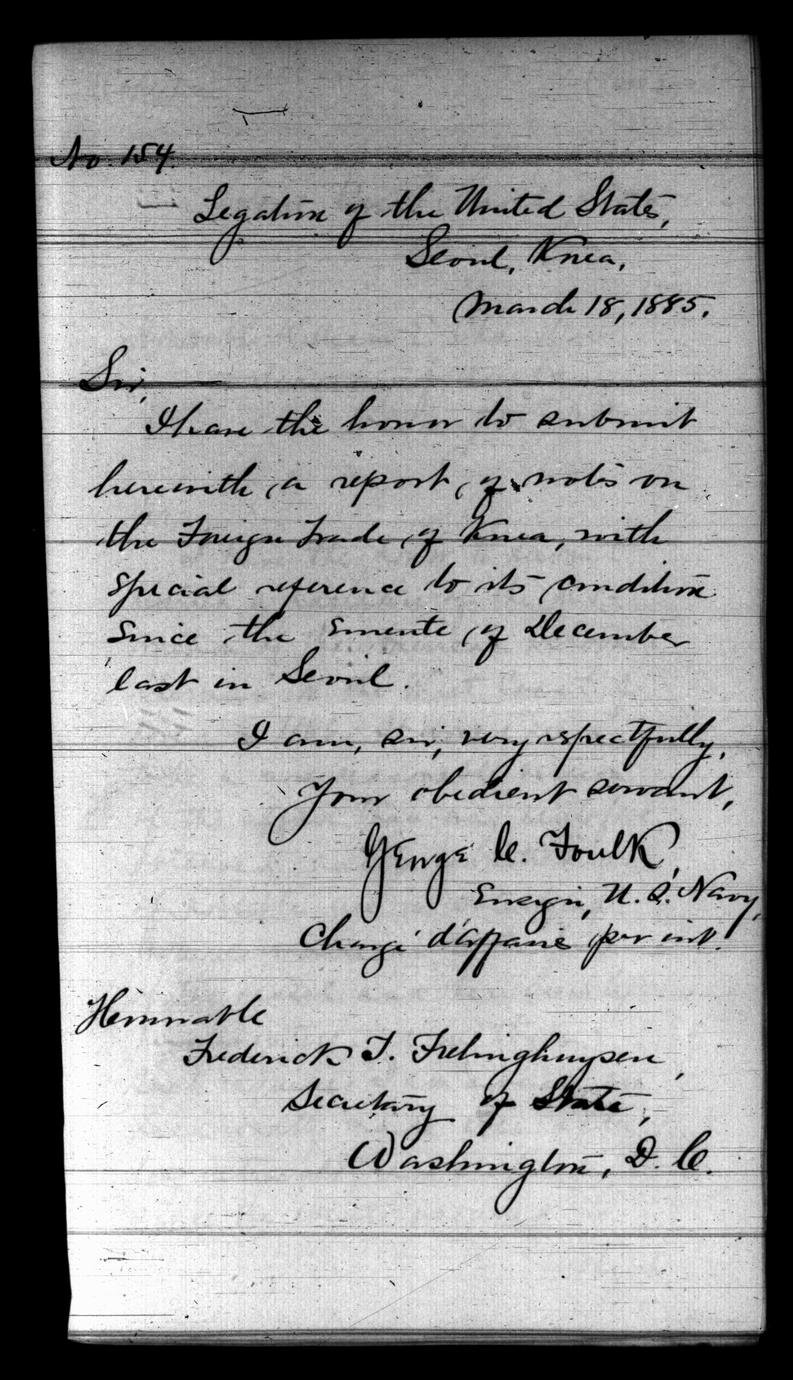 No. 154.
Legation of the United States,
Seoul, Korea,
March 18, 1885.
Sir,
I have the honor to submit
herewith a report, of notes on
the Foreign Trade of Korea, with
special reference to its condition
since the emeute of December
last in Seoul.
I am, sir, very respectfully,
Your obedient servant,
George C. Foulk,
Ensign, U. S. Navy,
Chargé d'affaires per int.
Honorable
Frederick T. Frelinghuysen,
Secretary of State,
Washington, D. C.